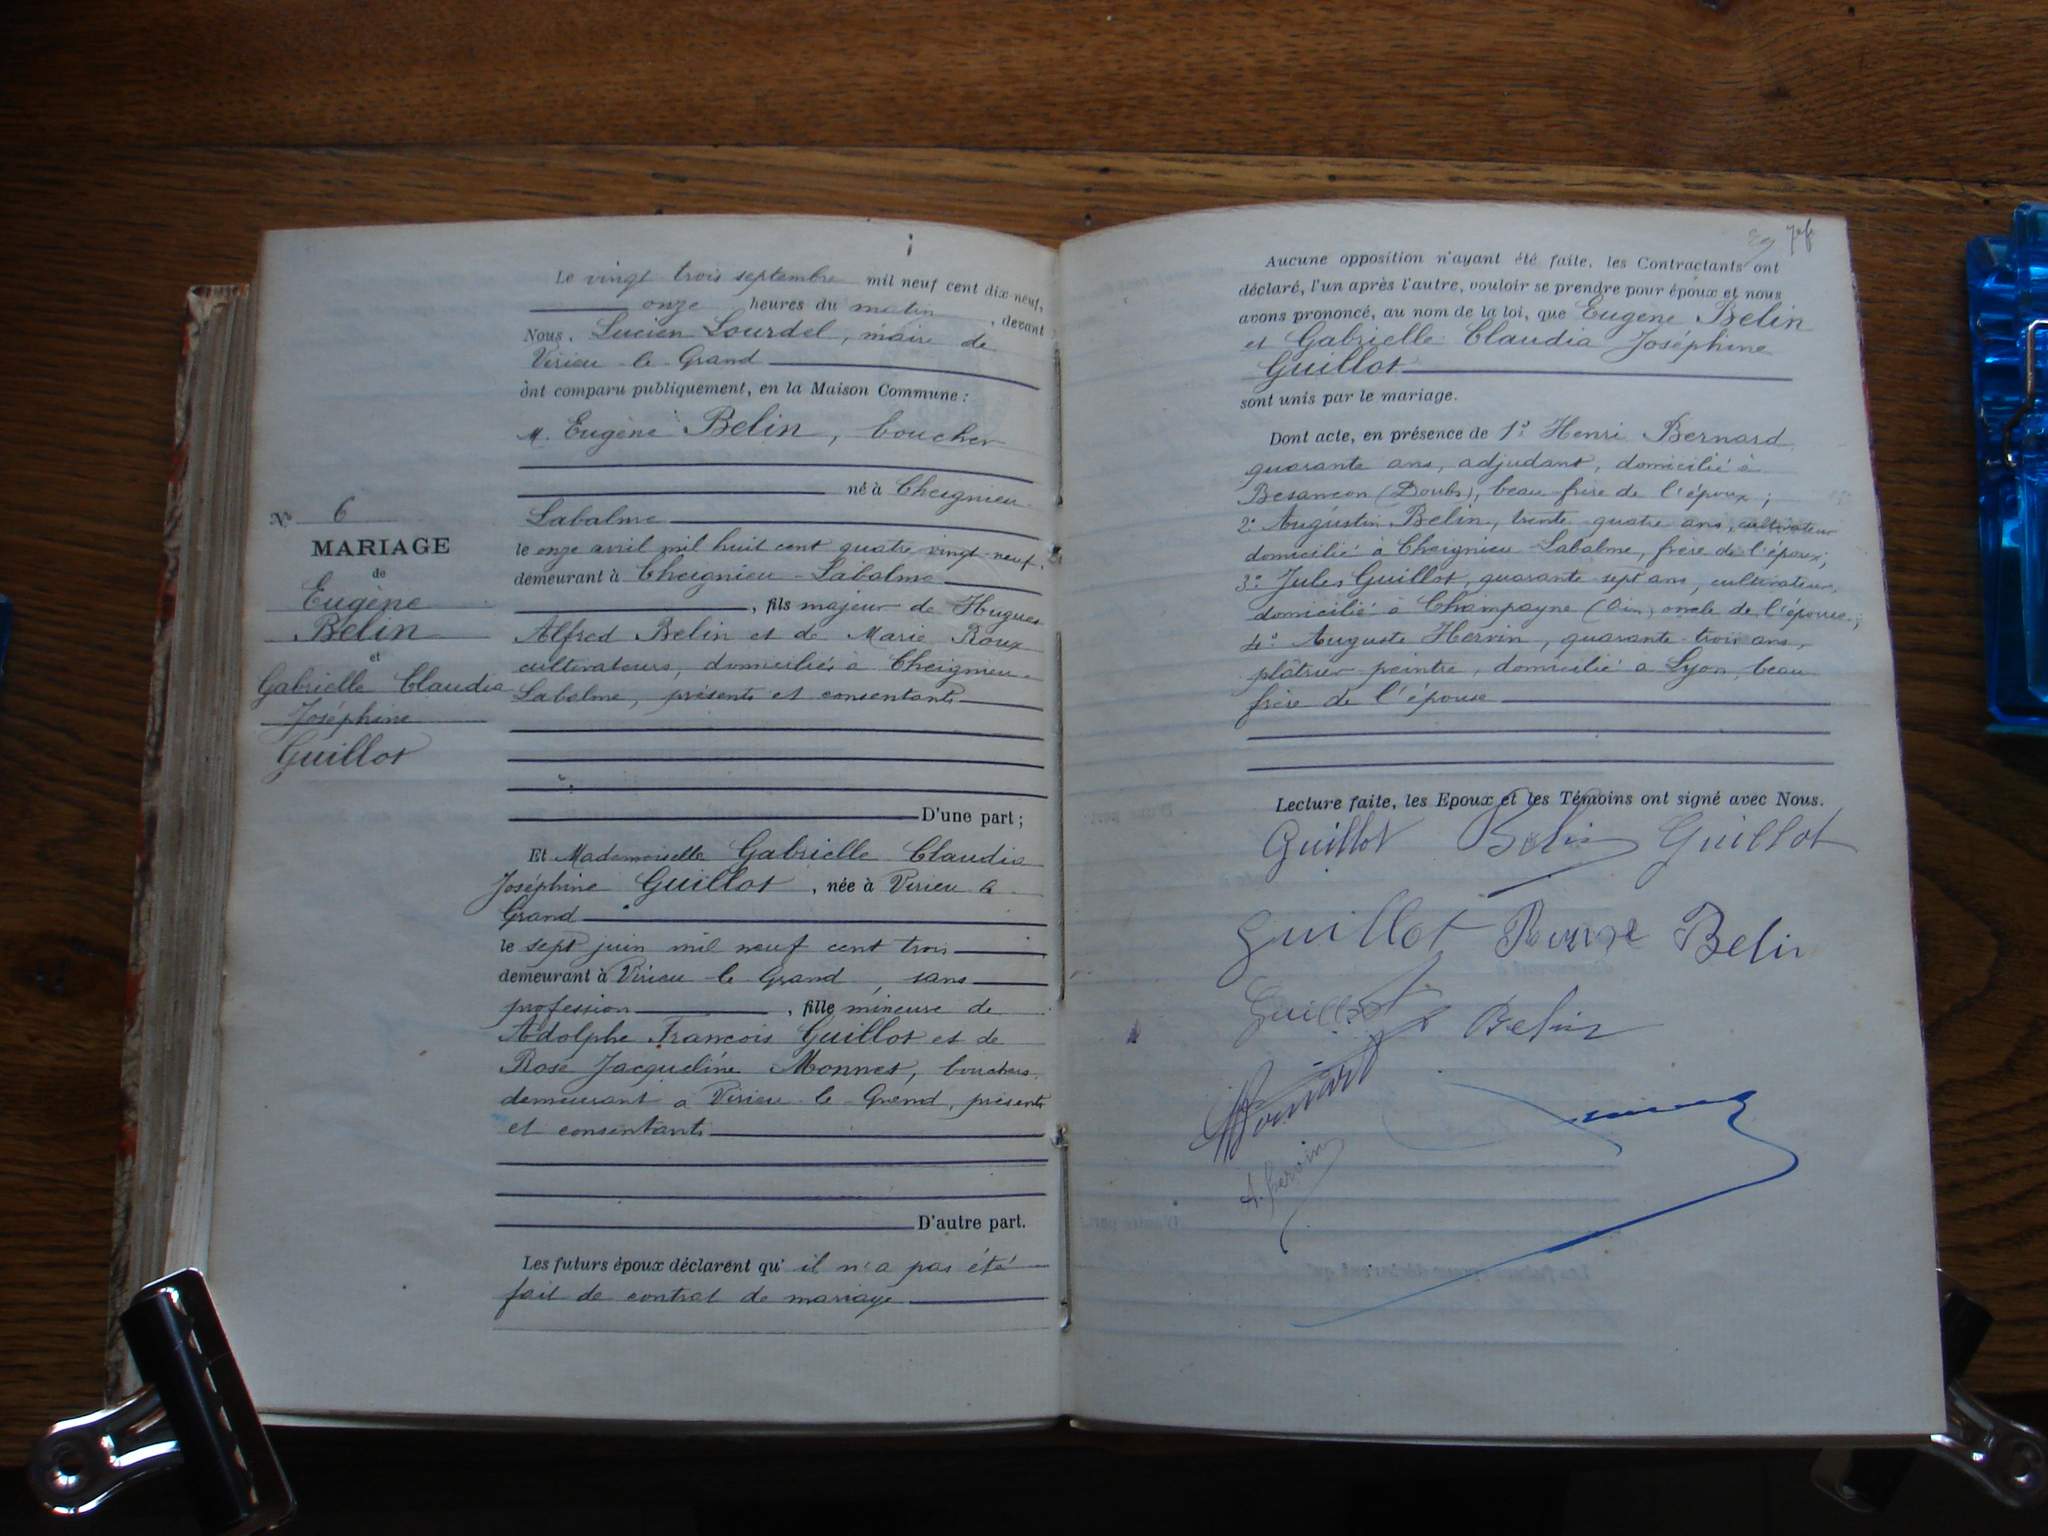 Le vingt trois septembre mil neuf cent dix-neuf,
onze heures du matin, devant
Nous, Lucien Lourdel, maire de
Virieu-le-Grand
ont comparu publiquement, en la Maison Commune :
M. Eugène Belin, boucher
né à Cheignieu-
Labalme
le onze avril mil huit cent quatre vingt-neuf,
demeurant à Cheignieu-Labalme
, fils majeur de Hugues
Alfred Belin et de Marie Roux
cultivateurs, domiciliés à Cheignieu-
Labalme, présents et consentants
D'une part ;
Et Mademoiselle Gabrielle Claudia
Joséphine Guillot, née à Virieu-le-
Grand
le sept juin mil neuf cent trois
demeurant à Virieu-le-Grand, sans
profession, fille mineure de
Adolphe François Guillot et de
Rose Jacqueline Monnet, bouchers,
demeurant à Virieu-le-Grand, présents
et consentants
D'autre part.
Les futurs époux déclarent qu'il n'a pas été
fait de contrat de mariage
No 6
MARIAGE
de
Eugène
Belin
et
Gabrielle Claudia
Joséphine
Guillot
Aucune opposition n'ayant été faite, les Contractants ont
déclaré, l'un après l'autre, vouloir se prendre pour époux et nous
avons prononcé, au nom de la loi, que Eugène Belin
et Gabrielle Claudia Joséphine
Guillot
sont unis par le mariage.
Dont acte, en présence de 1° Henri Bernard
quarante ans, adjudant, domicilié à
Besançon (Doubs), beau-frère de l'époux ;
2° Augustin Belin, trente-quatre ans, cultivateur
domicilié à Cheignieu-Labalme, frère de l'époux ;
3° Jules Guillot, quarante-sept ans, cultivateur,
domicilié à Champagne (Ain) oncle de l'épouse ;
4° Auguste Hervin, quarante-trois ans,
plâtrier-peintre, domicilié à Lyon, beau
frère de l'épouse
Lecture faite, les Epoux et les Témoins ont signé avec Nous.
Guillot Belin Guillot
Guillot Belin
Guillot Belin
A. Hervin